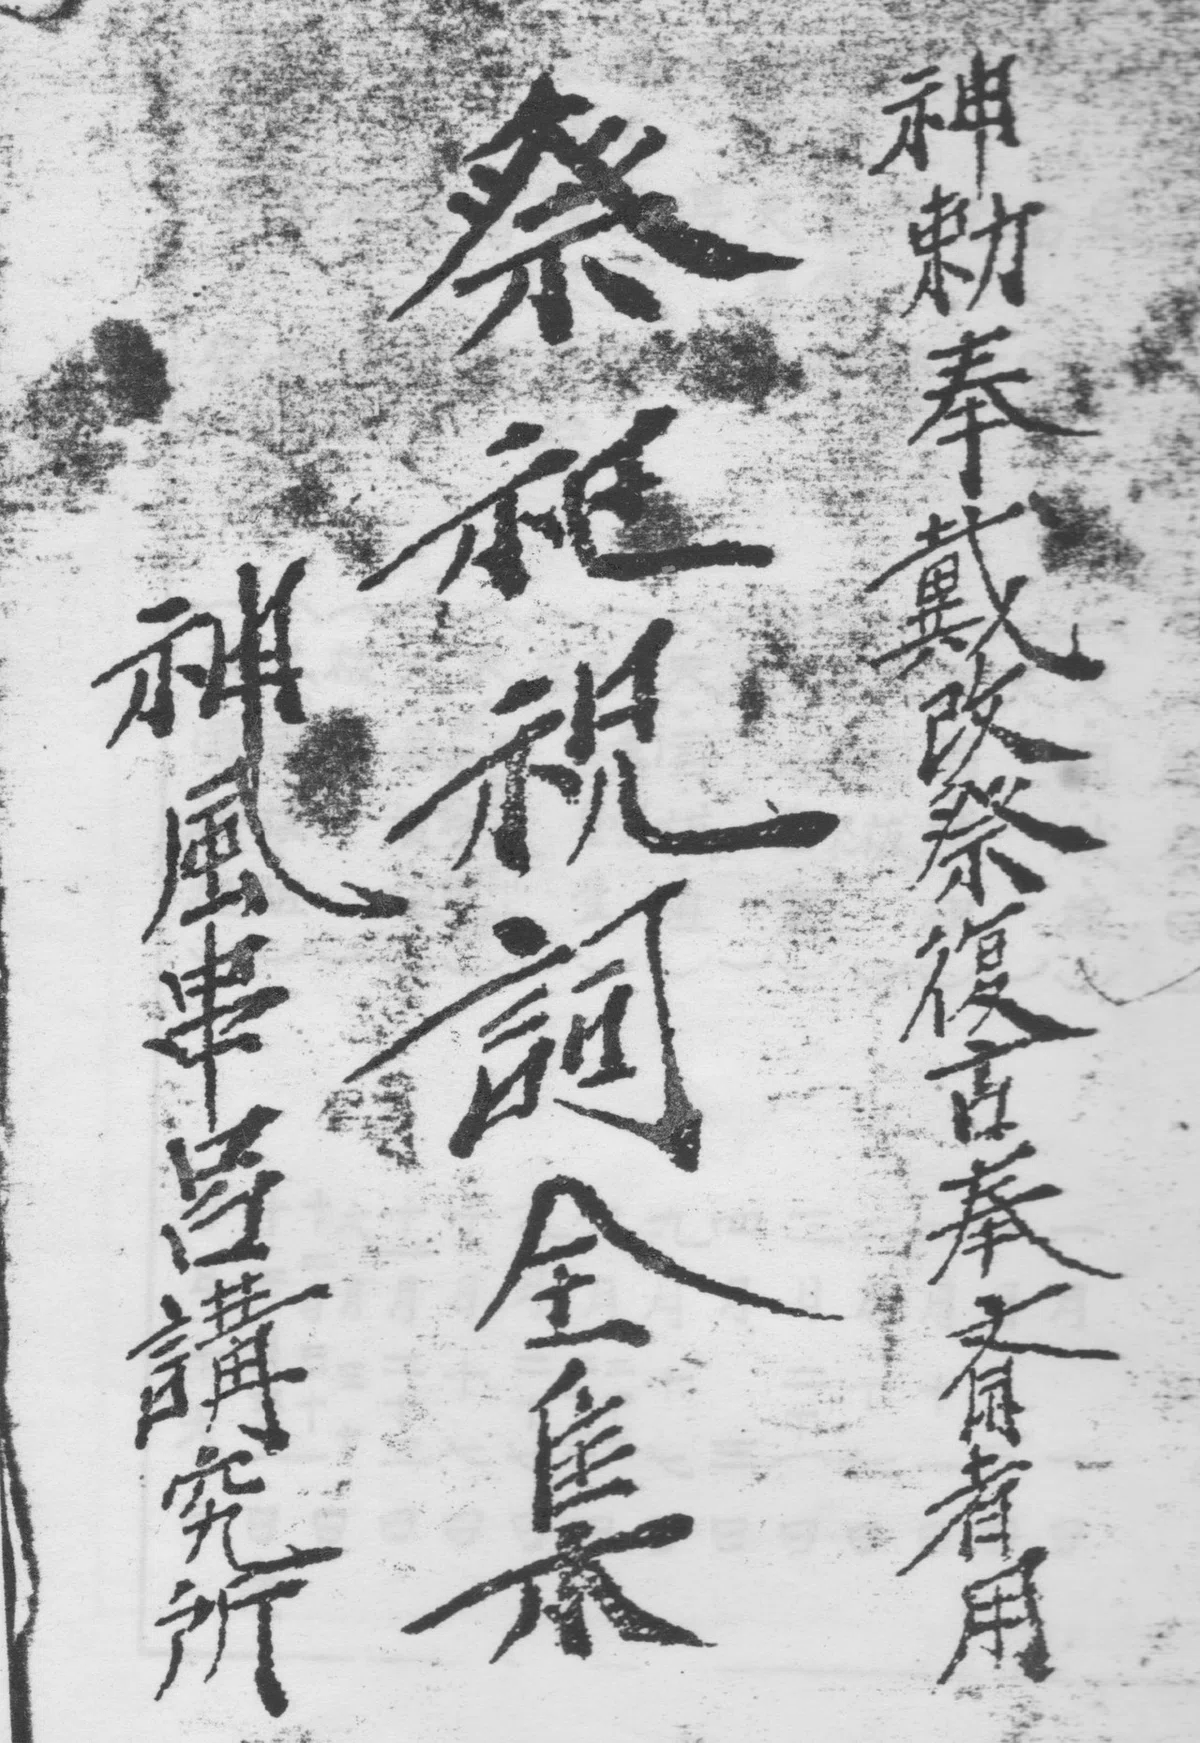 神勅奉戴改祭復古奉斎者用
祭祀祝詞全集
神風串呂講究所